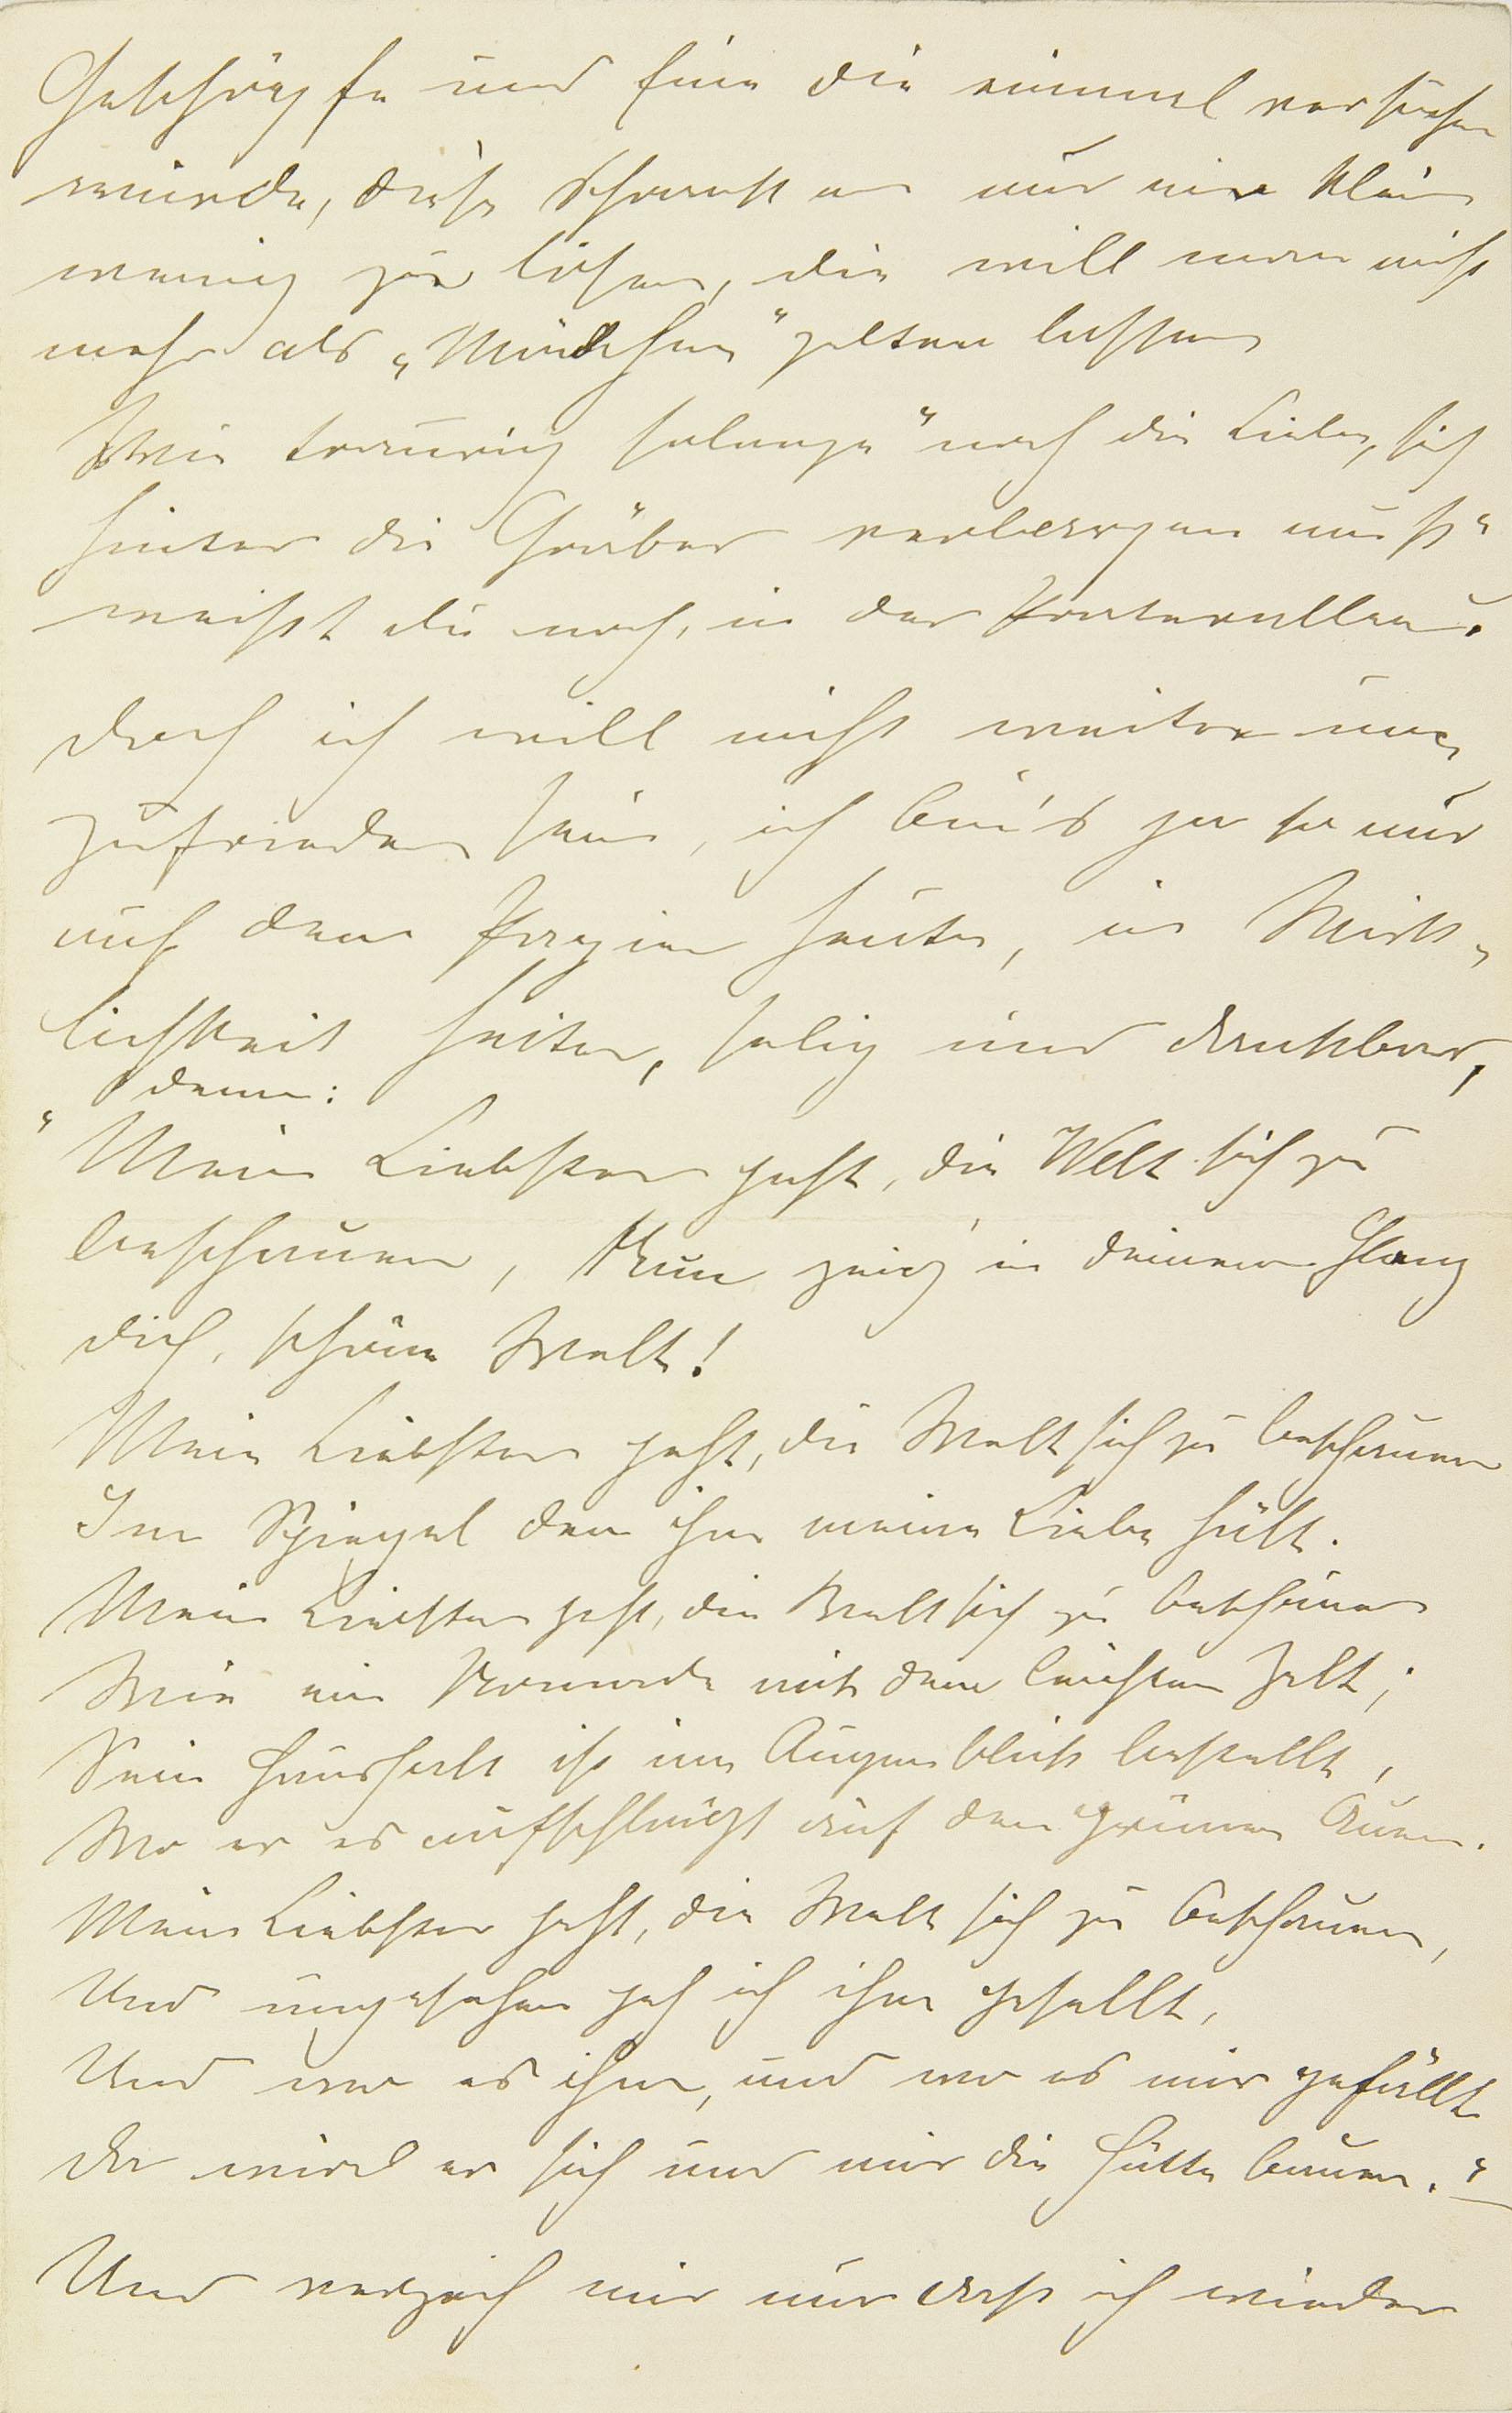 Geschöpfe und Eine die einmal versuchen
würde, diese Schranken nur ein klein
wenig zu lösen, die will man nicht
mehr als „Mädchen" gelten lassen
Wie traurig solange" noch die Liebe, sich
hinter die Gräber verbergen muß"
weißt du noch, in der Prateralle.
doch ich will nicht weiter un„
zufrieden sein, ich bin's ja so nur
auf dem Papier heute, in Wirk„
lichkeit heiter, selig und dankbar,
denn:
„Mein Liebster geht, die Welt sich zu
beschauen, Nun zeig' in deinem Glanz
dich, schöne Welt!
Mein Liebster geht, die Welt sich zu beschauen
Im Spiegel den ihm meine Liebe hält.
Mein Liebster geht, die Welt sich zu beschauen
Wie ein Nomade mit dem leichten Zelt;
Sein Haushalt ist im Augenblick bestellt,
Wo er es aufschlägt auf den grünen Auen.
Mein Liebster geht, die Welt sich zu beschauen,
Und ungesehen geh ich ihm gesellt,
Und wo es ihm, und wo es mir gefällt
da wird er sich und mir die Hütte bauen."
Und verzeih mir nur daß ich wieder